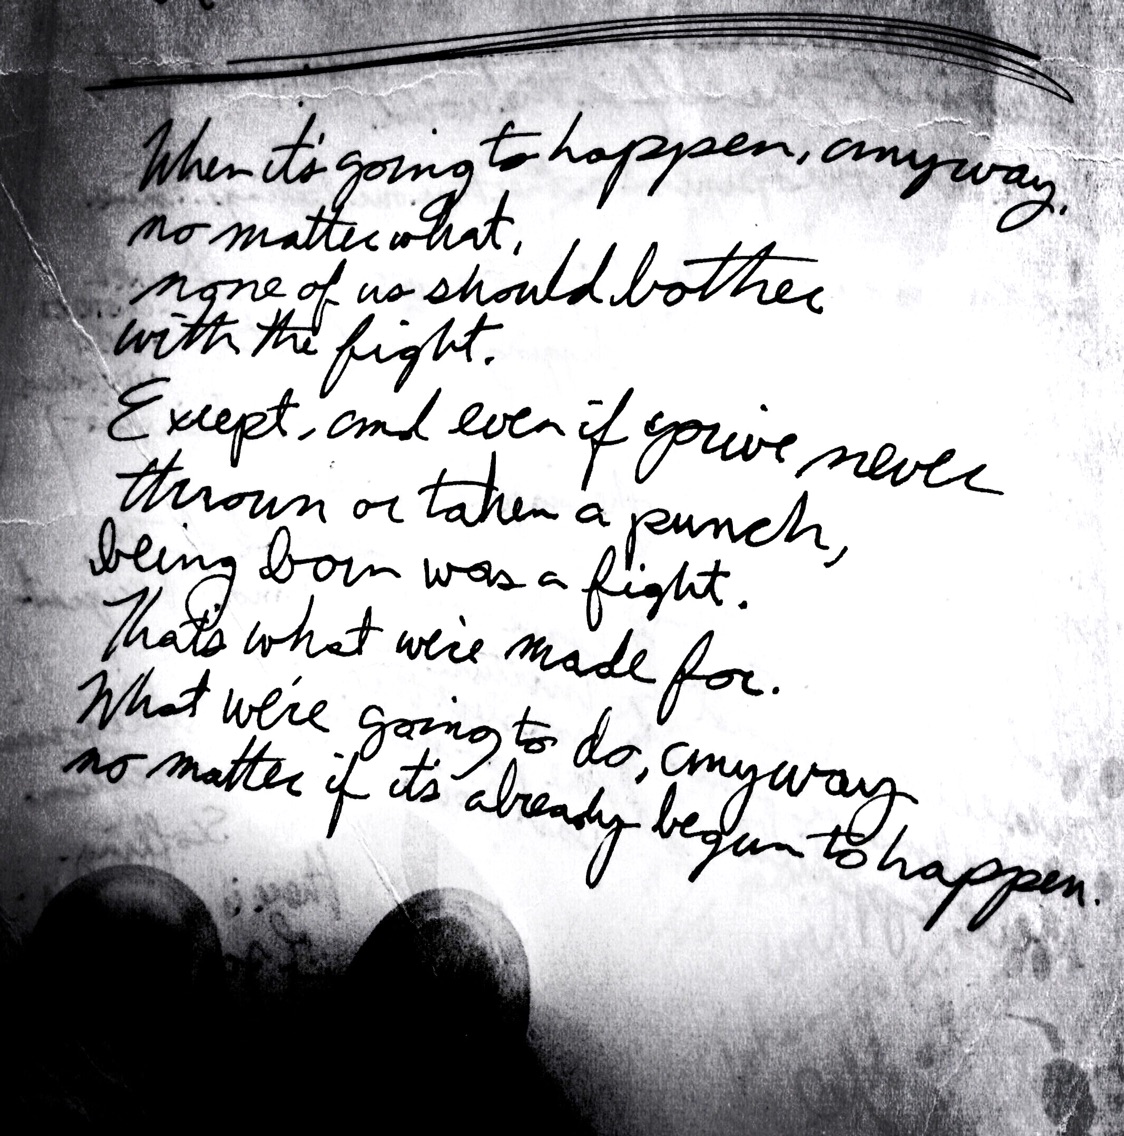 When it's going to happen, anyway,
no matter what,
none of us should bother
with the fight.
Except, and even if you've never
thrown or taken a punch,
being born was a fight.
That's what we're made for.
What we're going to do, anyway
no matter if it's already begun to happen.